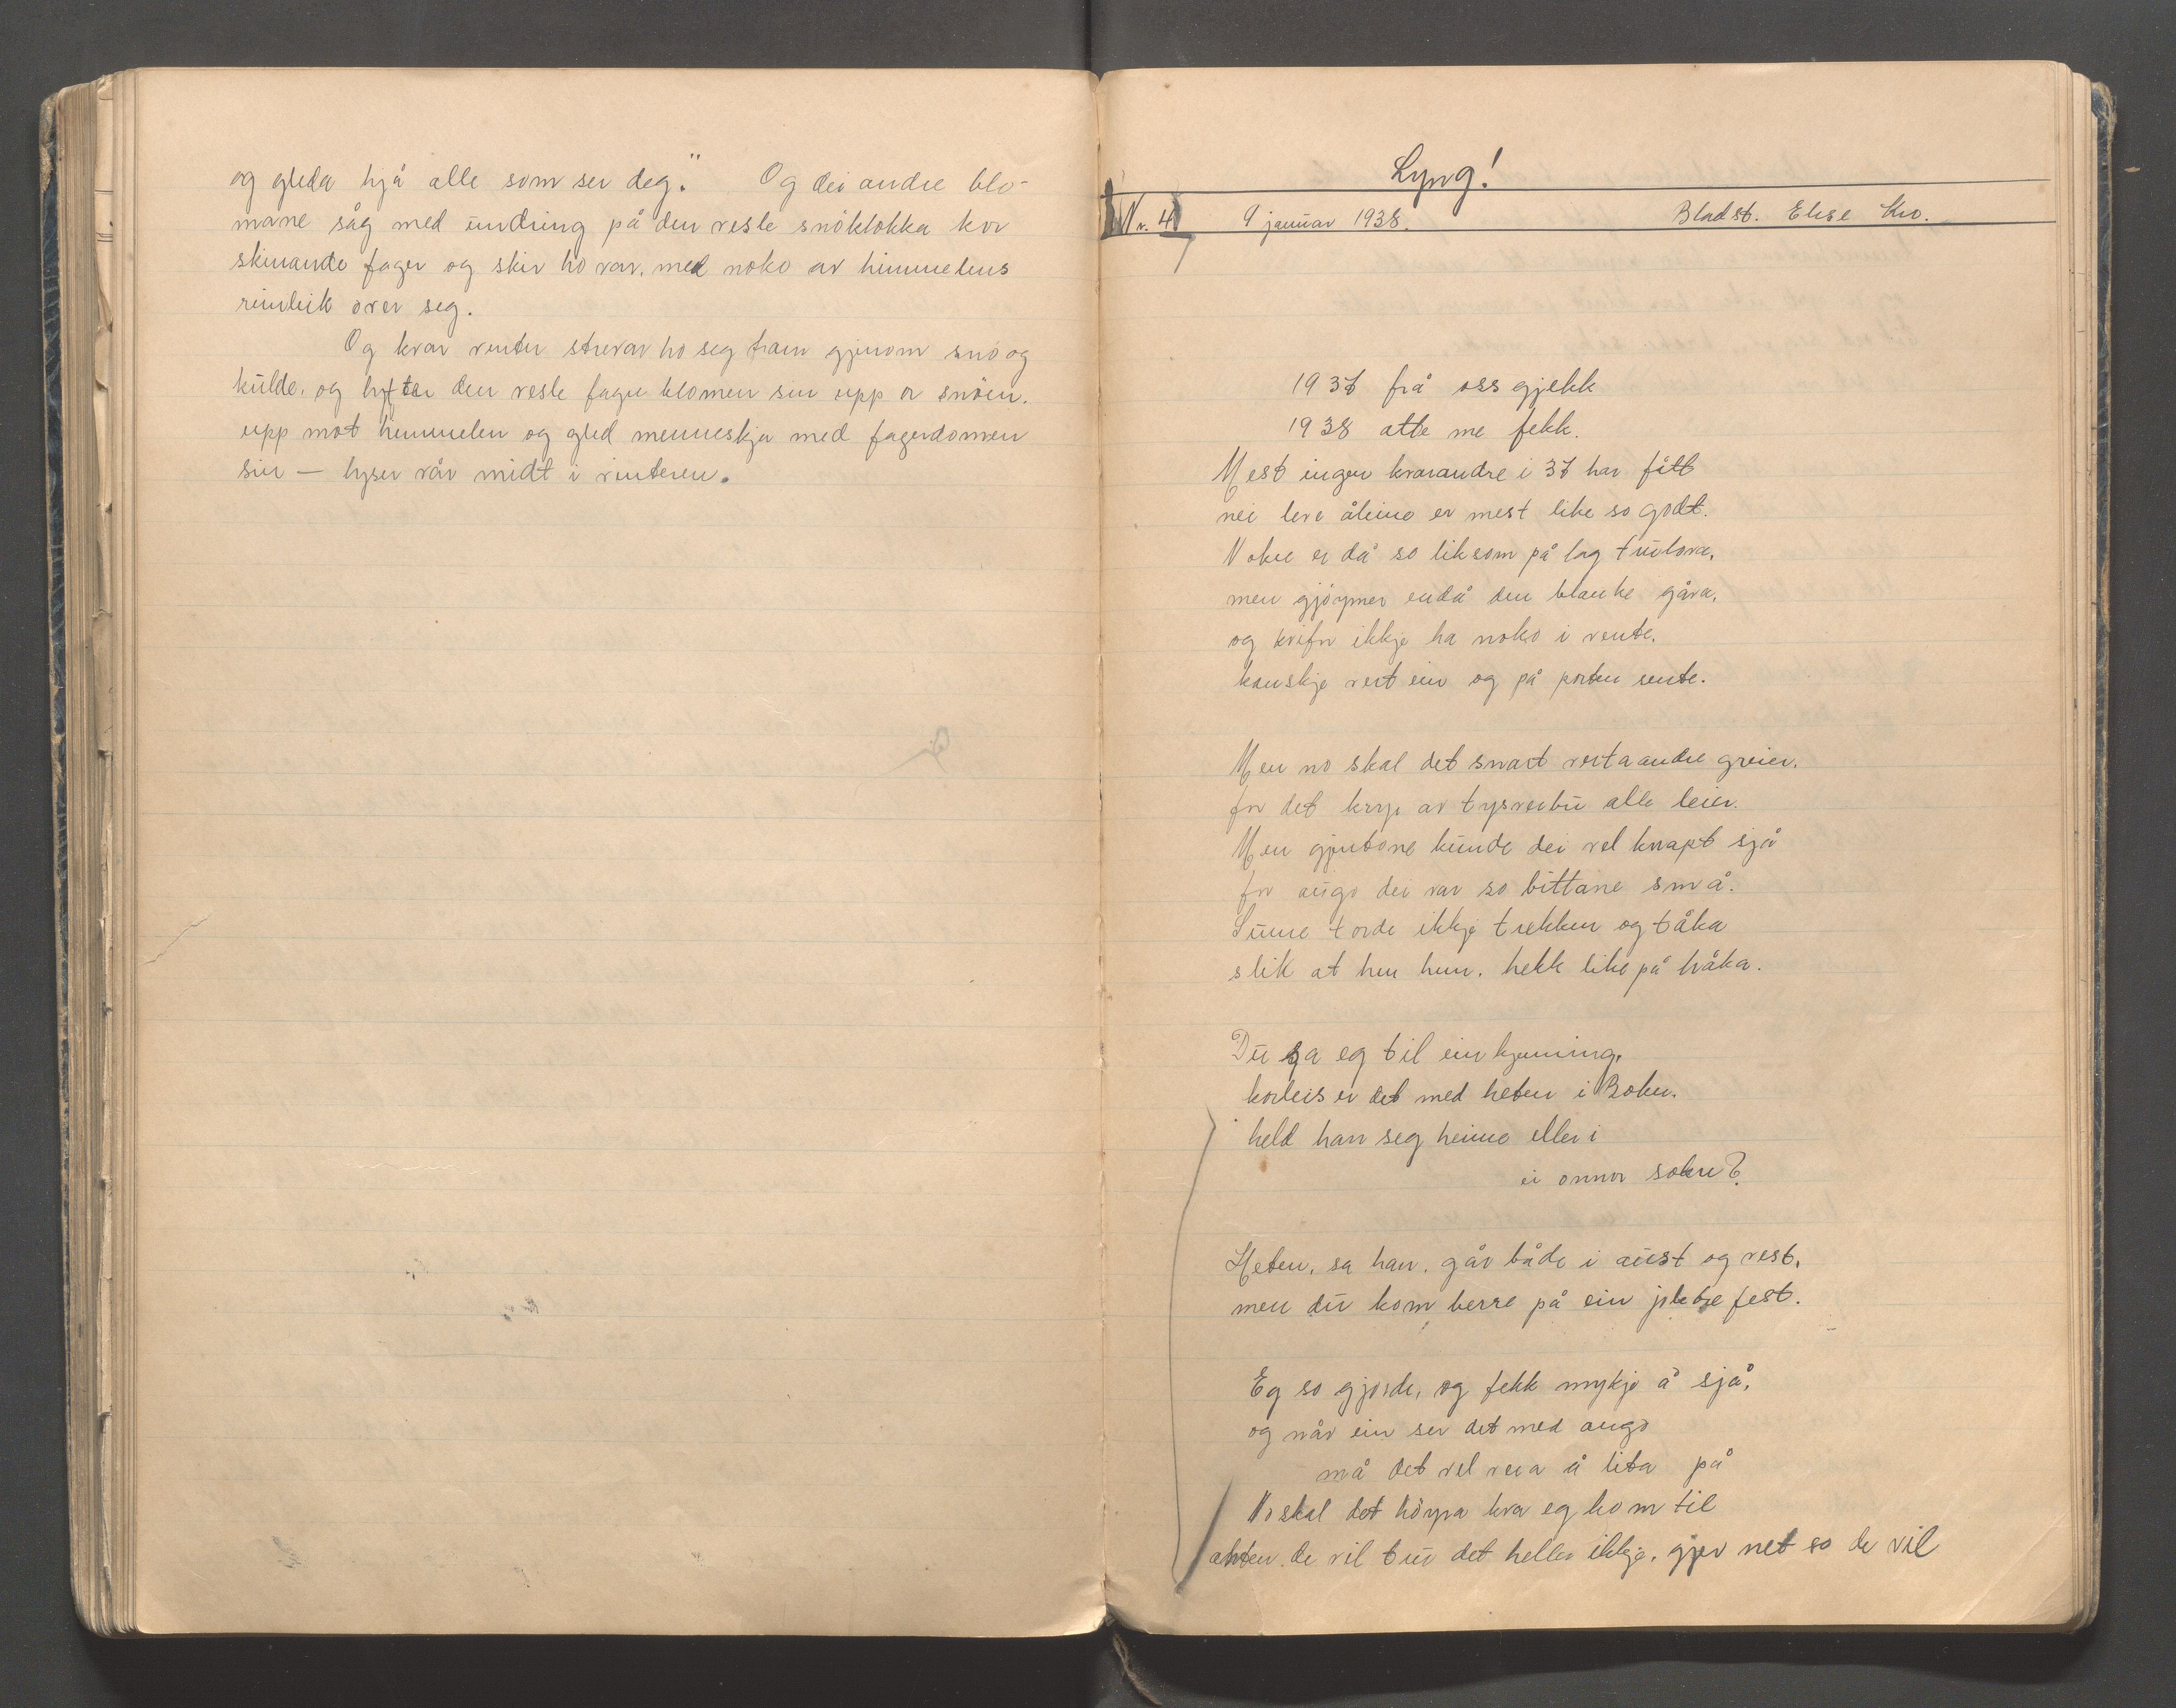 og gleda hjå alle som ser deg." Og dei andre blo-
mane såg med undring på den vesle snöklokka kor
skinande fager og skir ho var, med noko av himmelens
reinleik over seg.
Og kvar venter strevar ho seg fram gjenom snö og
kulde, og lyfter den vesle fagre blomen sin upp or snöen.
upp mot himmelen og gled menneskja med fagerdomen
sin — lyser vår midt i venteren.
Lyng!
Nr. 4 9 januar 1938. Bladst. Elise Kro.
1937 frå oss gjekk
1938 atte me fekk.
Mest ingen kvarandre i 37 har fått
nei leva åleine er mest like so godt.
Nokre er då so liksom på lag trulova,
men gjöymer endå den blanke gåva,
og kvifor ikkje ha noko i vente,
kanskje vert ein og på porten sente.
Men no skal det snart verta andre greier,
for det kryp av tysverbu alle leier.
Men gjentone kunde dei vel knapt sjå
for augo dei var so bittane små.
Sume torde ikkje trekken og tåka
slik at hen hun. hekk like på håka.
Du sa eg til ein kjenning,
korleis er det med heten i Bokn,
held han seg heime eller i
ei onnor sokn?
Heten, sa han, går både i aust og vest,
men du kom berre på ein jületre fest.
Eg so gjorde, og fekk mykje å sjå,
og når ein ser det med augo
må det vel vera å lita på
No skal det höyra kva eg kom til
anten de vil tru det heller ikkje, gjer net so de vil